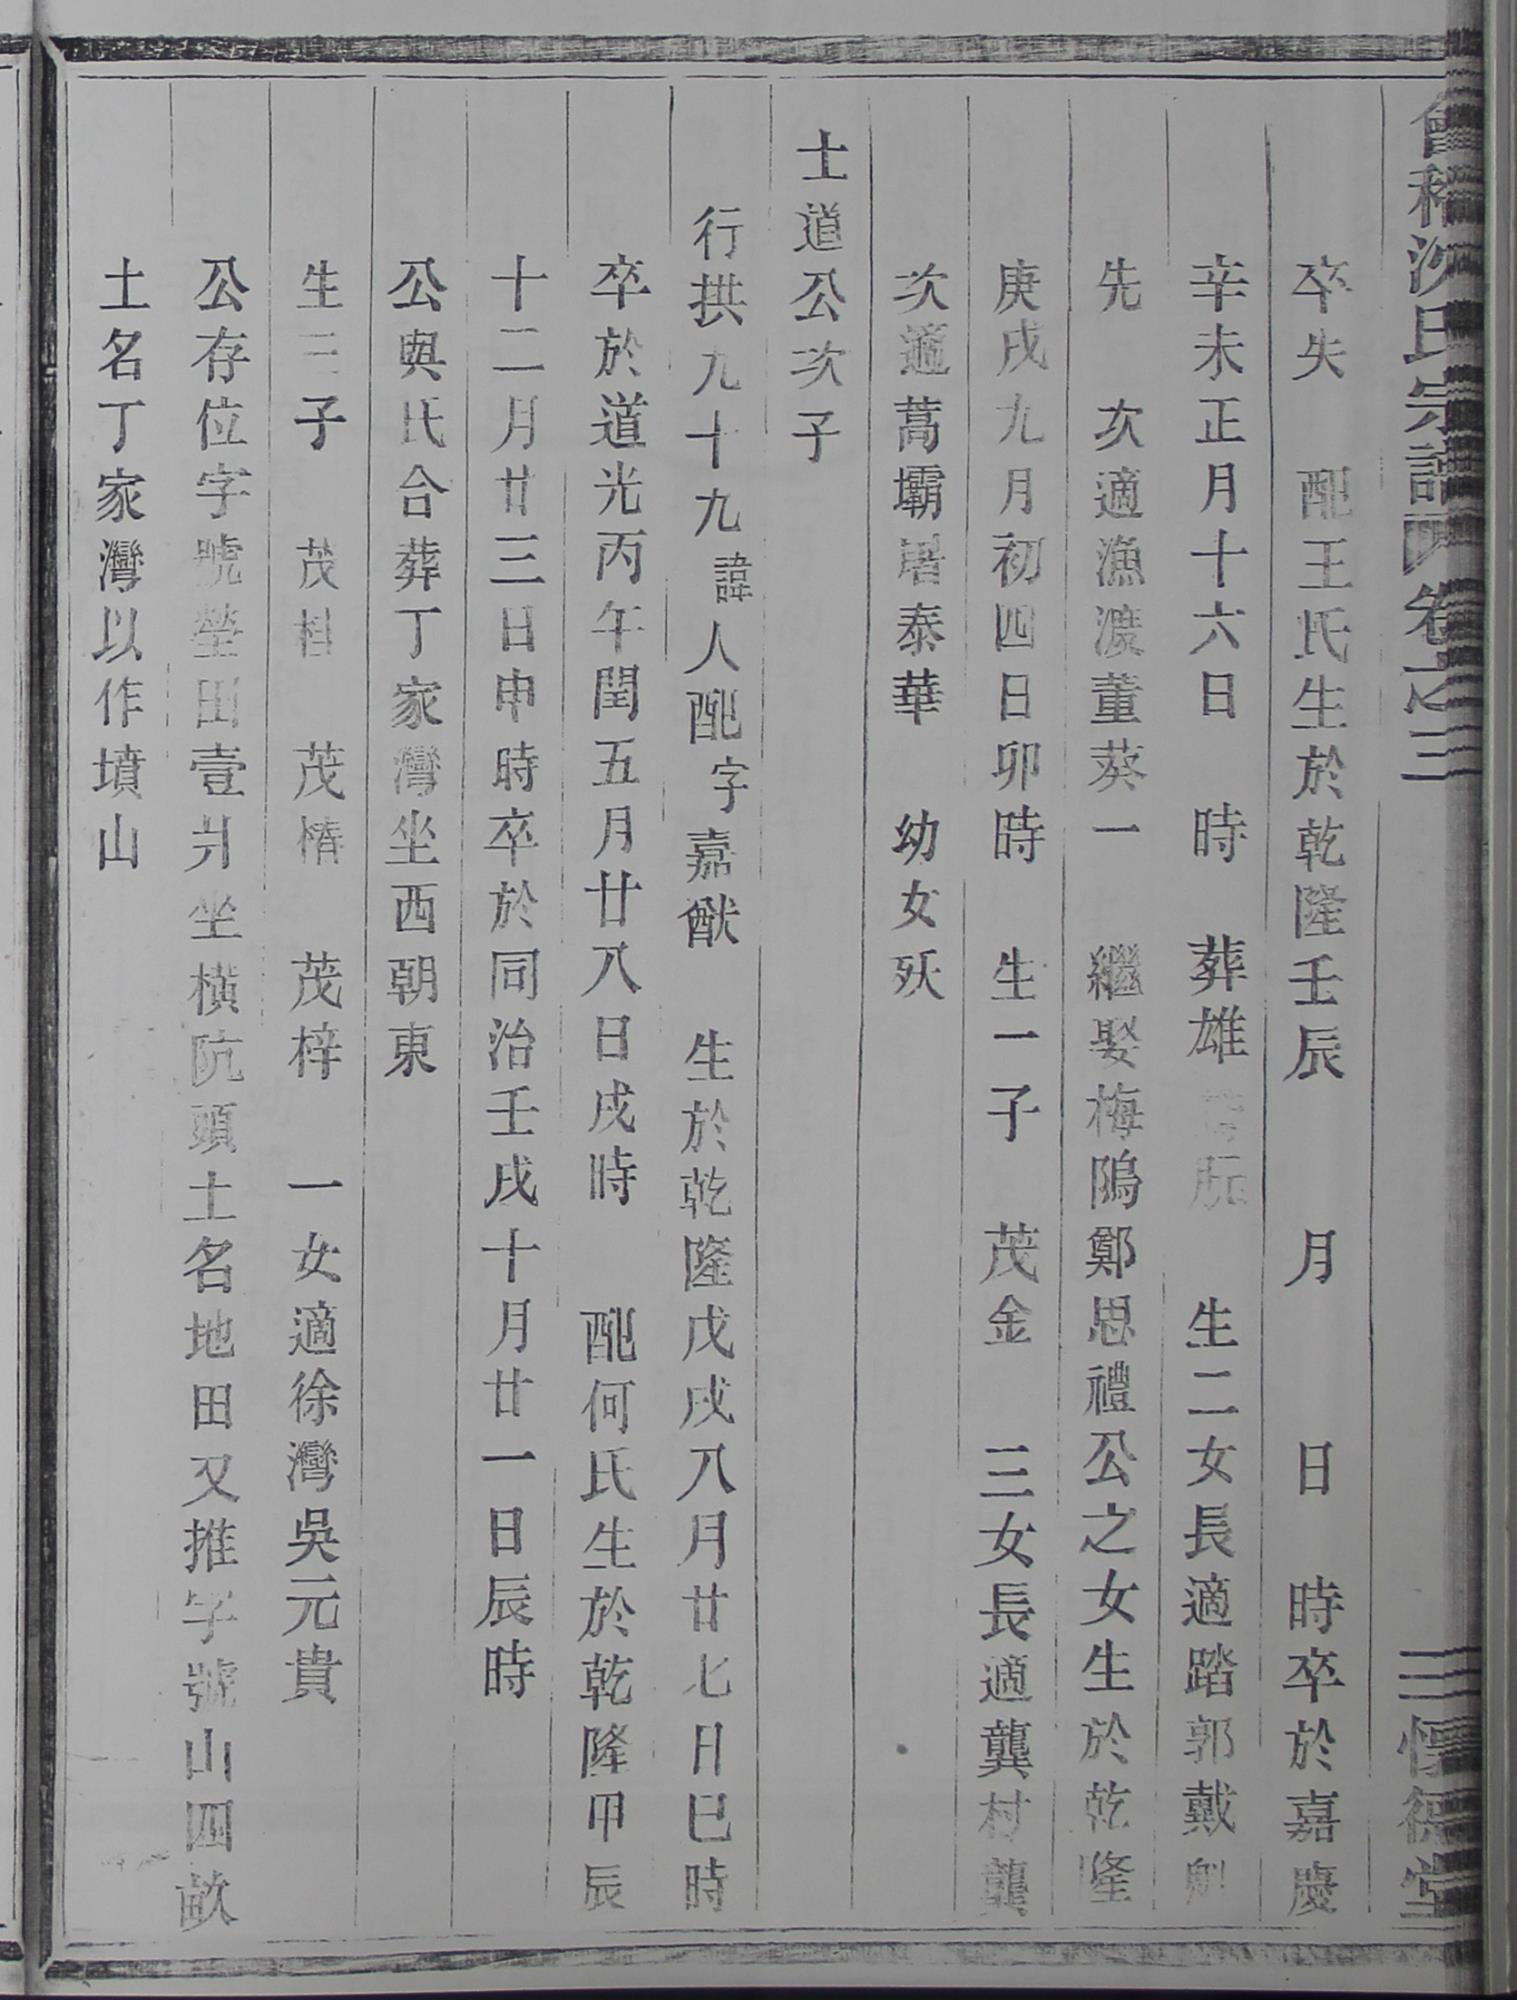 會稽沈氏宗譜 卷之三 三 德堂
卒失 配王氏生於乾隆壬辰 月 日 時卒於嘉慶
辛未正月十六日 時 葬雄 生二女長適踏郭戴
先 次適漁瀼董葵一 繼娶梅隖鄭思禮公之女生於乾隆
庚戌九月初四日卯時 生一子 茂金 三女長適龔村龔
次適蒿壩屠泰華 幼女殀
士道公次子
行拱九十九諱人配字嘉猷 生於乾隆戊戌八月廿七日巳時
卒於道光丙午閏五月廿八日戌時 配何氏生於乾隆甲辰
十二月廿三日申時卒於同治壬戌十月廿一日辰時
公與氏合葬丁家灣坐西朝東
生三子 茂桂 茂椿 茂梓 一女適徐灣吳元貴
公存位字號塋田壹爿坐橫阬頭土名地田又推字號山四畝
土名丁家灣以作墳山